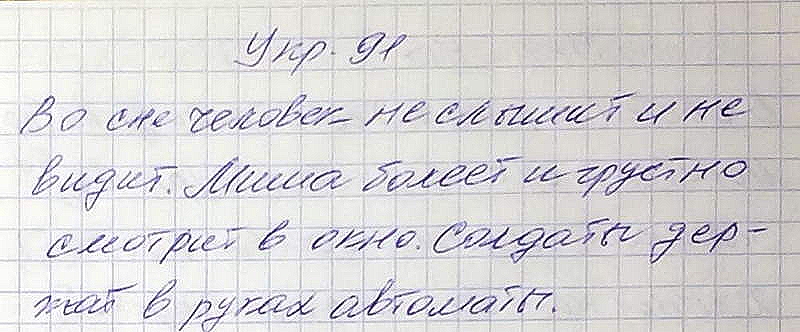 Укр. 91
Во сне человек не слышит и не
видит. Миша болеет и грустно
смотрит в окно. Солдаты дер-
жат в руках автоматы.